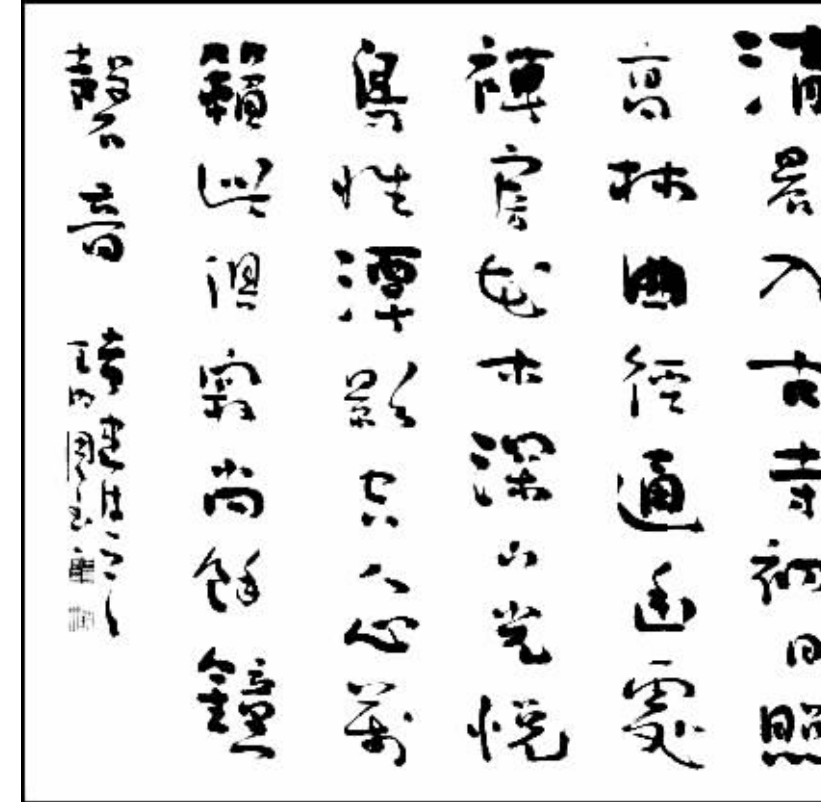 清晨入古寺初日照
高林曲徑通幽處
禪房花木深山光悅
鳥性潭影空人心萬
籟此俱寂尚餘鐘
磬音